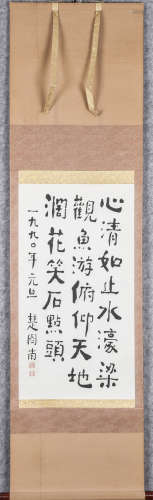 心清如止水濠梁
觀魚游俯仰天地
濶花笑石點頭
一九九〇年元旦 楚图南